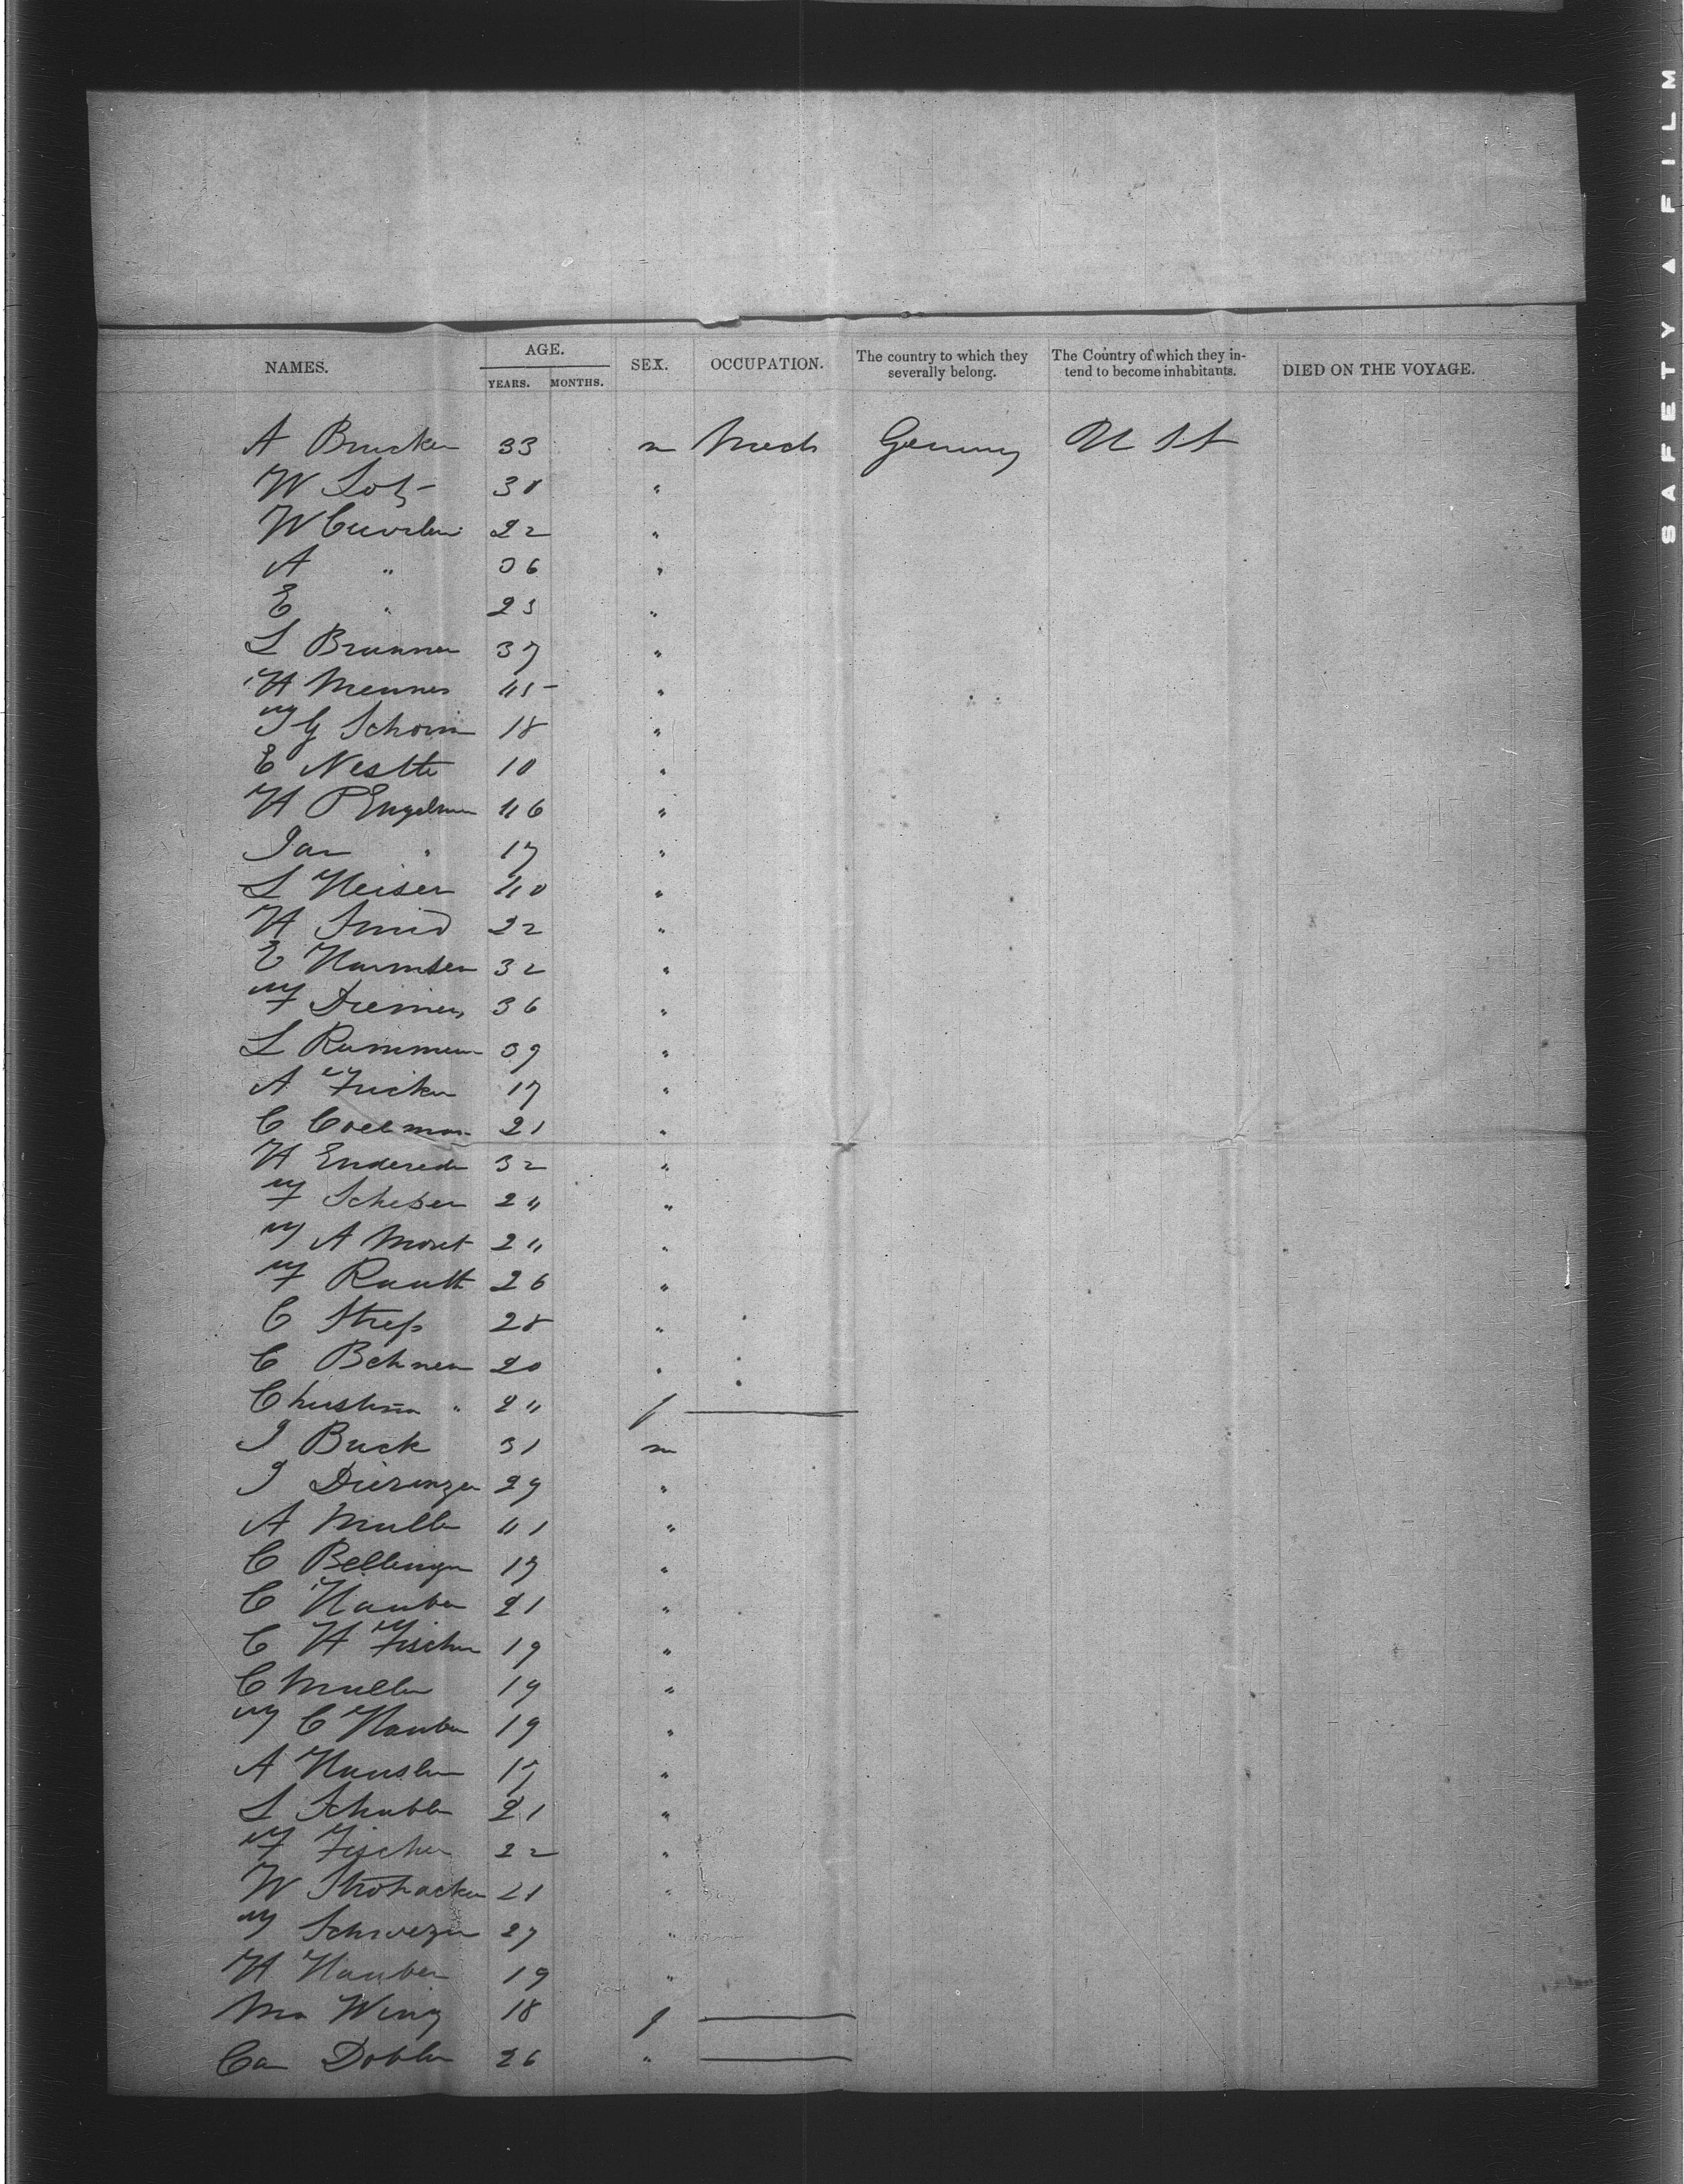 SAFETY ▲ FILM
NAMES. AGE. YEARS. MONTHS. SEX. OCCUPATION. The country to which they severally belong. The Country of which they intend to become inhabitants. DIED ON THE VOYAGE.
A Brucker 33 m Mech Germny U St
W Lotz 30 "
W 22 "
A " 36 "
E " 23 "
L Brunner 37 "
H Menner 45 "
J G Schorn 18 "
E Nestle 10 "
H P Engelman 46 "
Jan " 17 "
L Heiser 40 "
H Smid 22 "
E Harmsen 32 "
F Diemer 36 "
L Rammen 39 "
A Fricker 17 "
C Coelman 21 "
H 32 "
F Scheber 24 "
J A Moret 24 "
F Rauth 26 "
C Stress 28 "
C Behnen 20 "
Christina " 24 f
J Buck 31 m
J 29 "
A Muller 41 "
C Bellinger 17 "
C Hauber 21 "
C H Fischer 19 "
C Muller 19 "
J C Hauber 19 "
A Hausler 17 "
L Schubler 21 "
F Fischer 22 "
W Strohacker 21 "
J Schwezer 27 "
H Hauber 19 "
Ma Wing 18 f
Ca Dobler 26 "